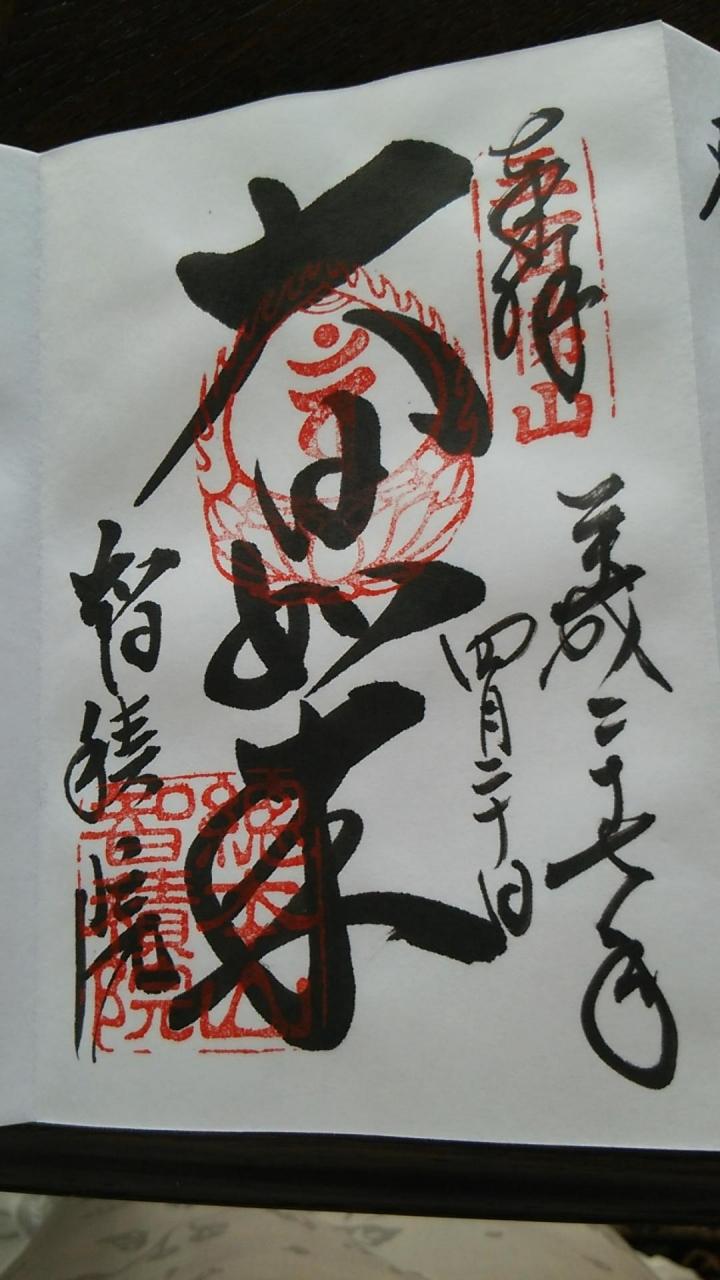 奉拝
五百佛山
平成二十七年
四月二十日
大日如来
智積院
總本山
智積院